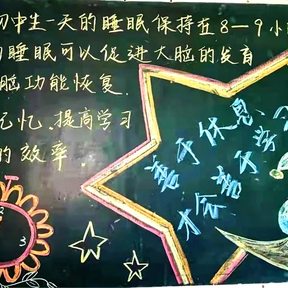 初中生一天的睡眠保持在8—9小
的睡眠可以促进大脑的发育
脑功能恢复.
记忆、提高学习
的效率
善于休息、
才会善于
学习